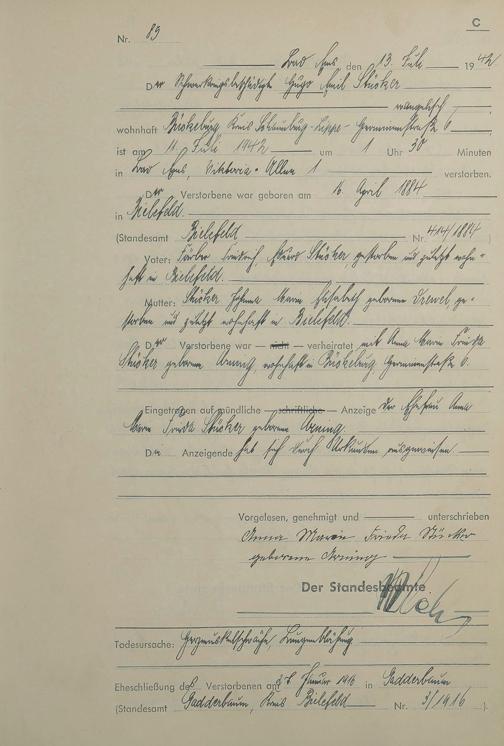 C
Nr. 89
Bad Ems, den 13. Juli 1942
Der Schwerkriegsbeschädigte Hugo Emil Stücker
evangelisch
wohnhaft Bückeburg Kreis Schaumburg-Lippe - Germanenstraße 6
ist am 11. Juli 1942 um 1 Uhr 30 Minuten
in Bad Ems, Viktoria-Allee 1 verstorben.
Der Verstorbene war geboren am 16. April 1884
in Bielefeld.
(Standesamt Bielefeld Nr. 414/1884
Vater: Färber Friedrich Stücker, gestorben und zuletzt wohn-
haft in Bielefeld.
Mutter: Stücker Johanna Marie Elisabeth geborene ge-
storben und zuletzt wohnhaft in Bielefeld.
Der Verstorbene war — nicht — verheiratet mit Anna Marie Frieda
Stücker geborene Arning, wohnhaft in Bückeburg, Germanenstraße 6.
Eingetragen auf mündliche — schriftliche — Anzeige der Ehefrau Anna
Marie Frieda Stücker geborene Arning.
Die Anzeigende hat sich durch Urkunden ausgewiesen
Vorgelesen, genehmigt und unterschrieben
Anna Marie Frieda Stücker
geborene Arning
Der Standesbeamte
Todesursache: Herzmuskelschwäche, Lungenblähung
Eheschließung des Verstorbenen am Januar 1916 in Gadderbaum
(Standesamt Gadderbaum, Kreis Bielefeld Nr. 3/1916 ).